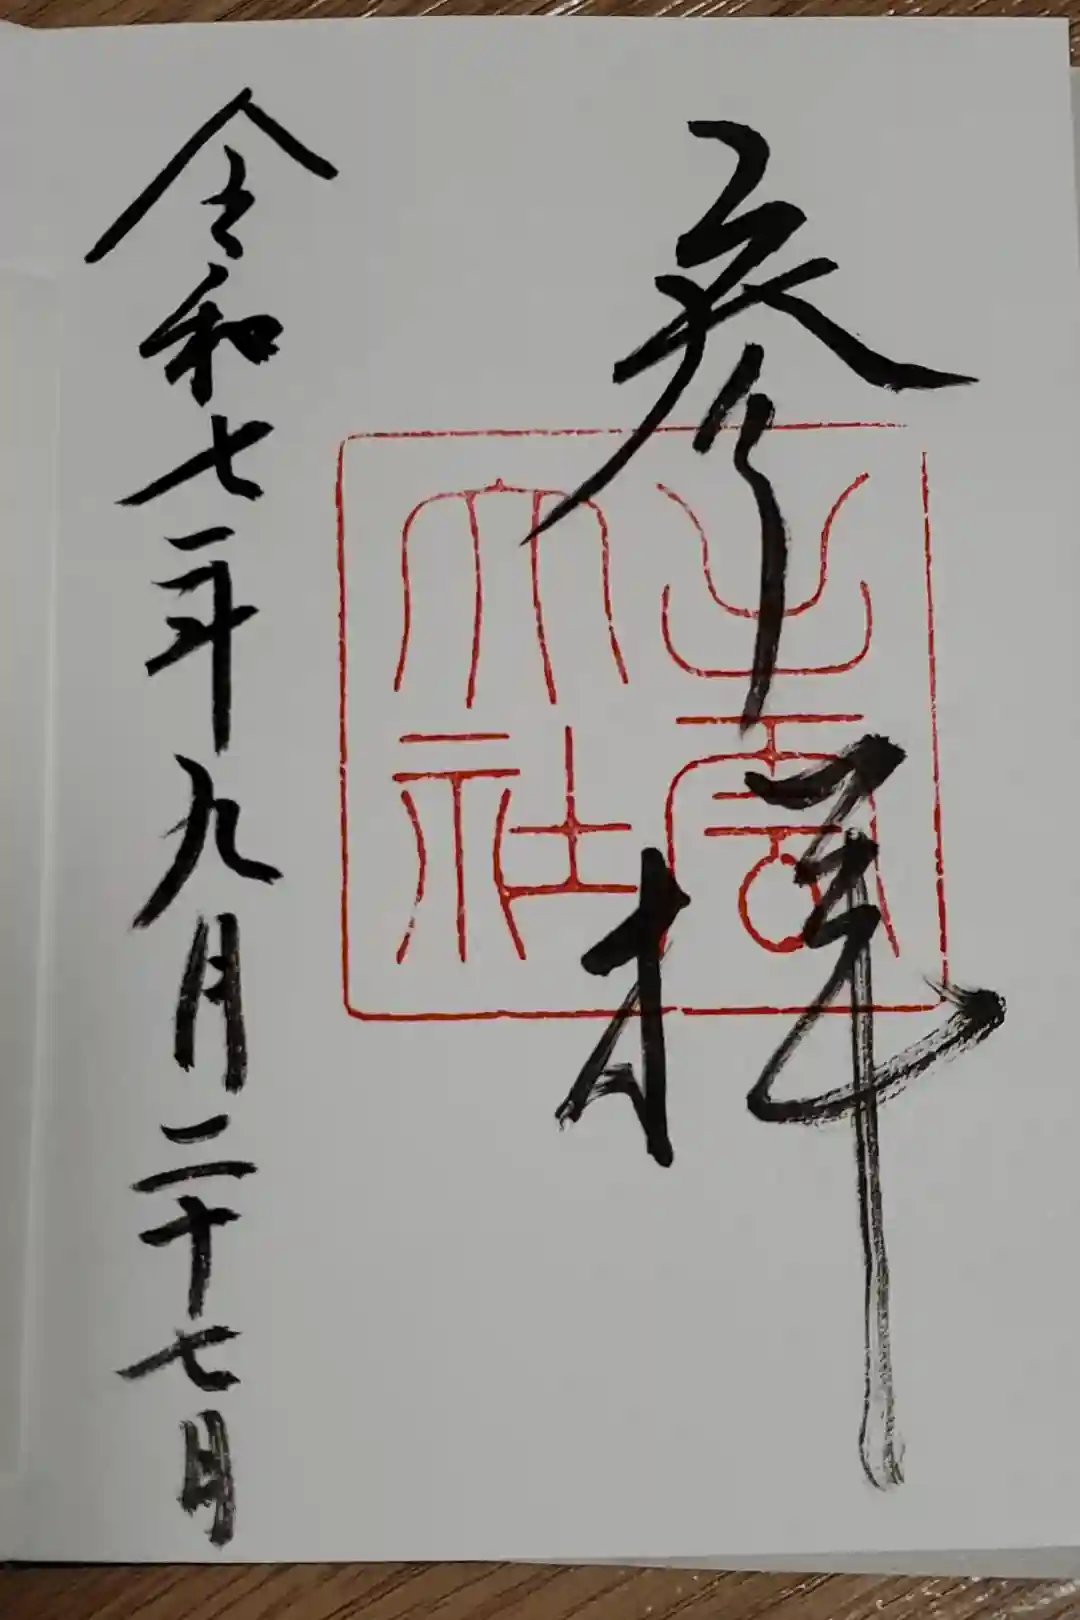 参拝
出雲
大社
令和七年九月二十七日